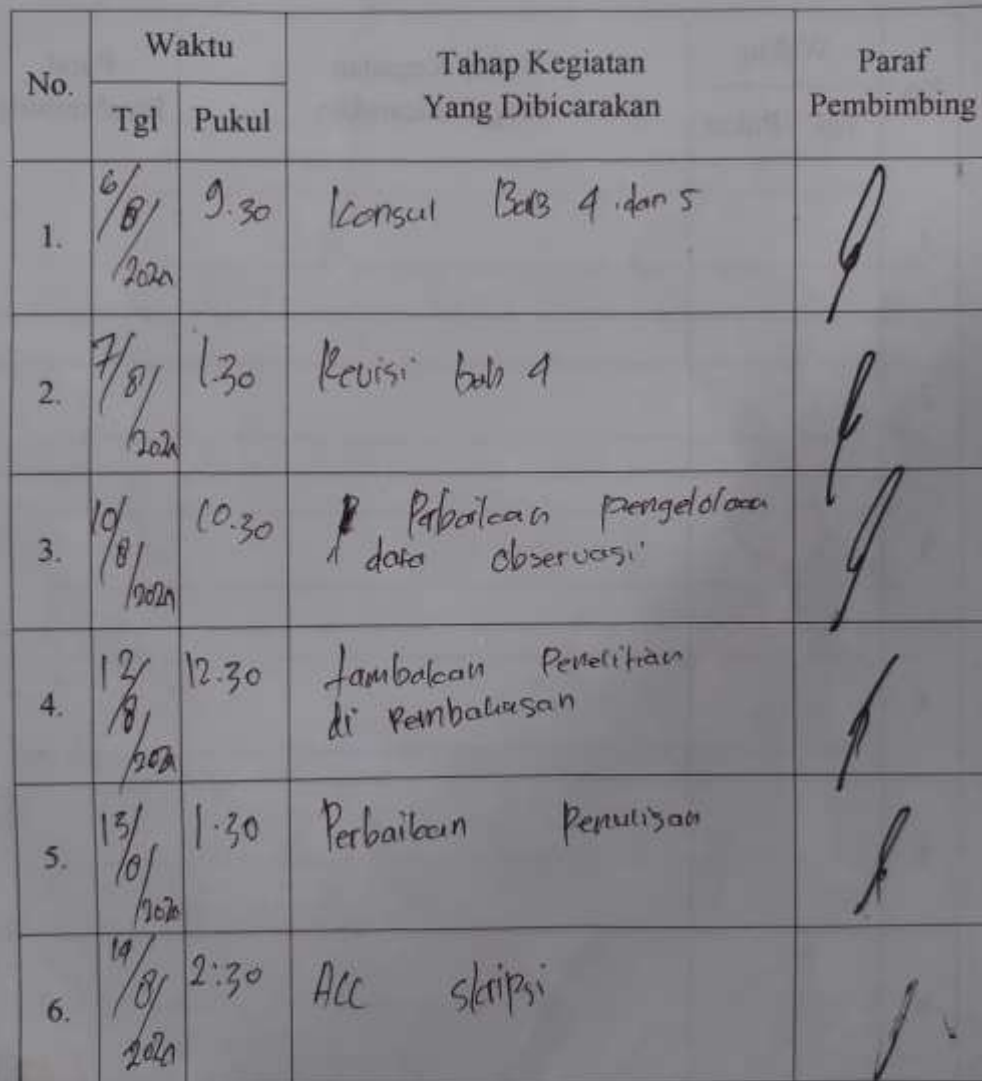 No. Waktu Tahap Kegiatan Paraf
Tgl Pukul Yang Dibicarakan Pembimbing
1. 6/8/2020 9.30 Konsul BaB 4 dan 5
2. 7/8/ 1.30 Revisi bab 4
3. 10/8/2020 10.30 Perbaikan pengelolaan
data observasi
4. 12/8/2020 12.30 tambahkan Penelitian
di Pembahasan
5. 13/8/2020 1.30 Perbaikan Penulisan
6. 14/8/2020 2:30 ACC skripsi